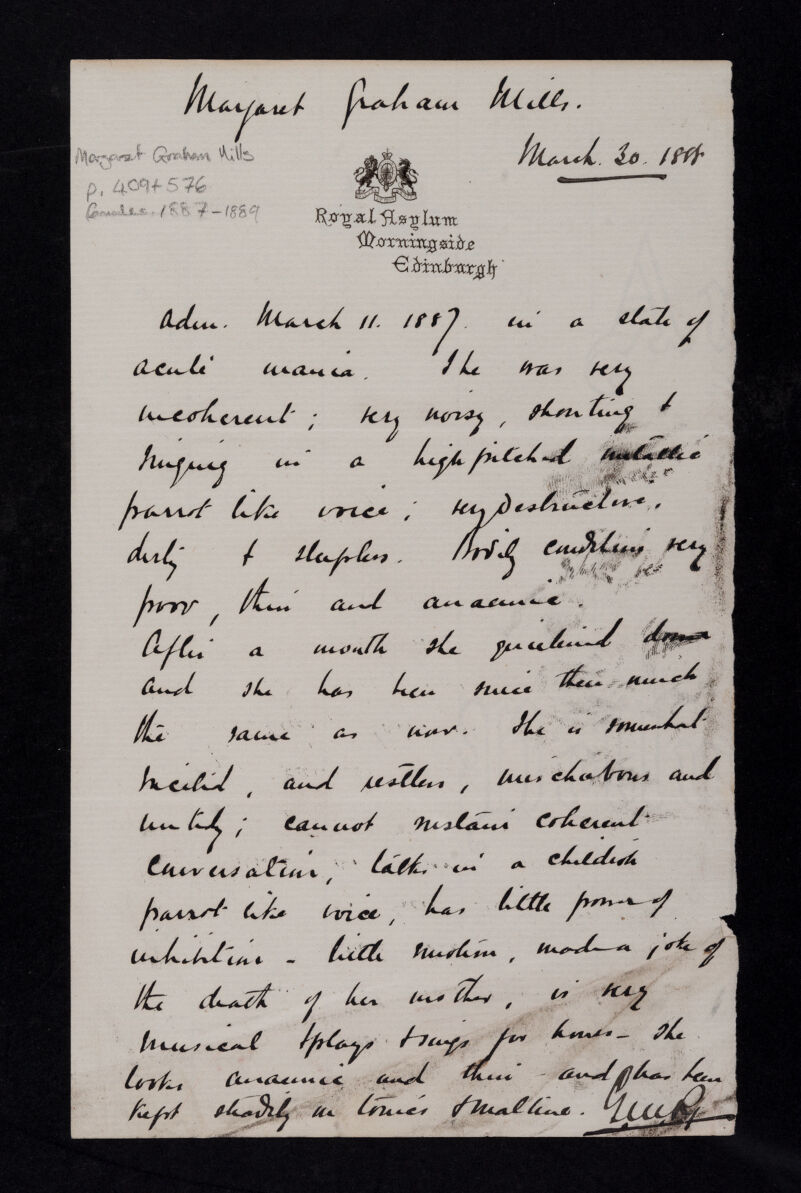 Margaret Graham Mills.
March. 30. 1888
Margaret Graham Mills
p. 409+576
Females. 1887-1889
Royal Asylum
Morningside
Edinburgh
Adm. March 11. 1887. in a state of
acute mania. She was very
incoherent; very noisy, shouting &
singing in a high pitched metallic
parrot like voice; very destructive,
dirty & sleepless. Bodily condition very
poor, thin and anaemic.
After a month she quietened down
and she has been since then much
the same as now. She is somewhat
excited, and restless, mischievous and
untidy; cannot sustain coherent
conversation, talks in a childish
parrot like voice, has little power of
inhibition - little emotion, made a joke of
the death of her mother, is very
musical & plays & sings for hours - she
looks anaemic and thin and has been
kept steadily on tonics & maltine.